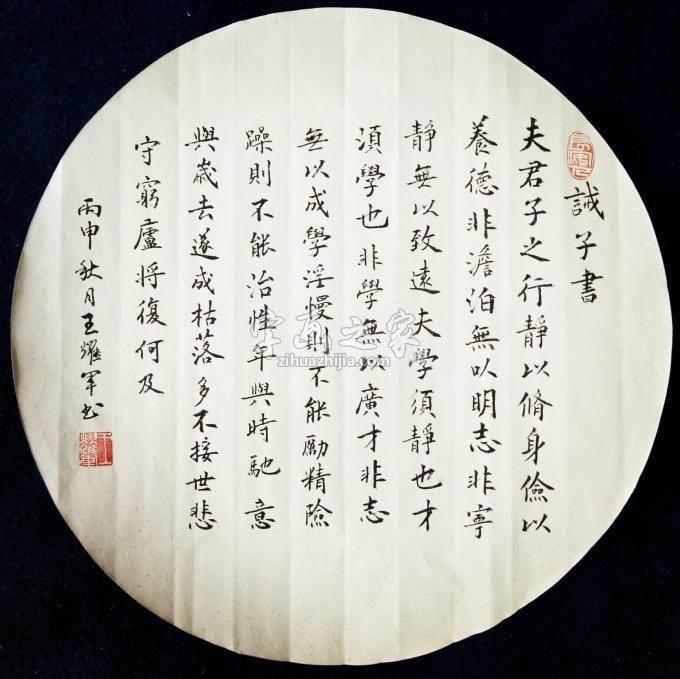 誡子書
夫君子之行靜以脩身儉以
養德非澹泊無以明志非寧
靜無以致遠夫學須靜也才
須學也非學無以廣才非志
無以成學淫慢則不能勵精險
躁則不能治性年與時馳意
與歲去遂成枯落多不接世悲
守窮廬將復何及
丙申秋月王耀軍书
字画之家
zihuazhijia.com